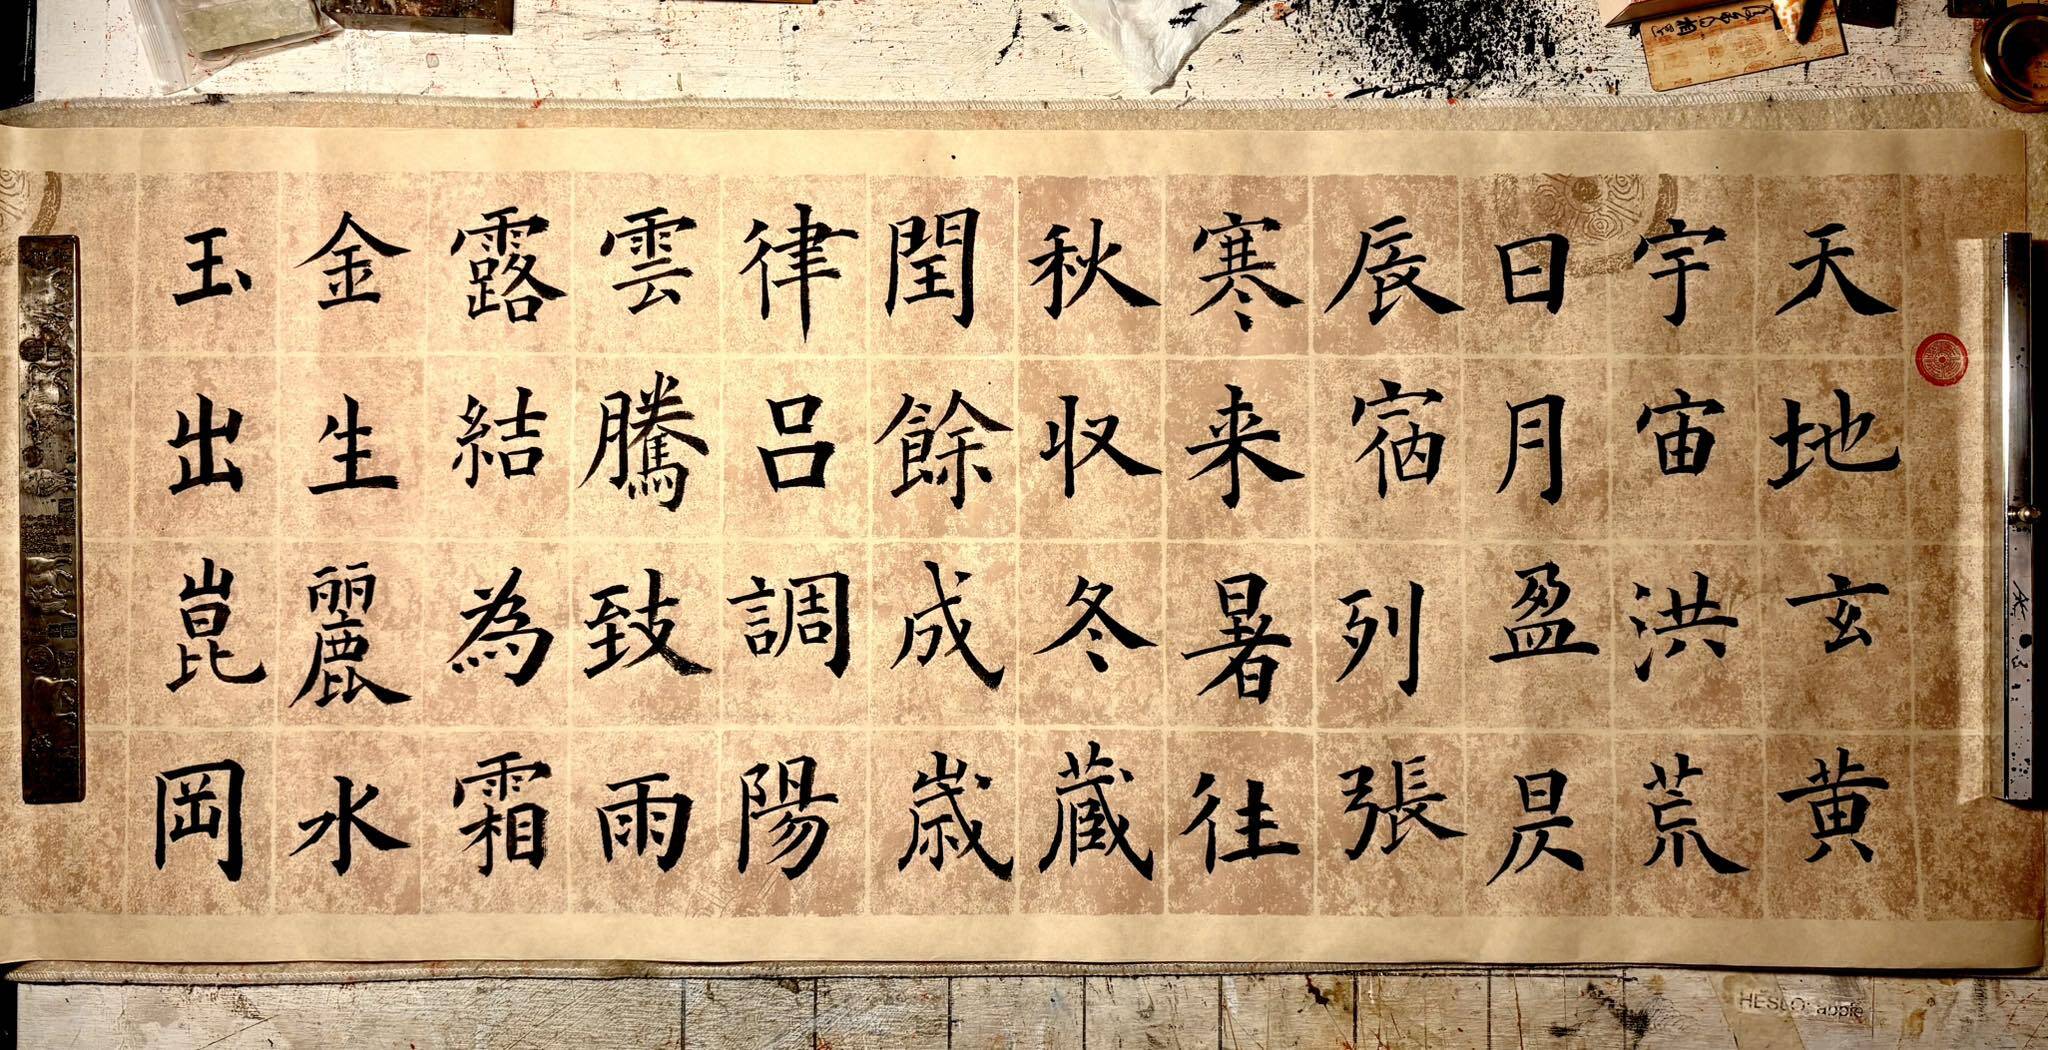 天地玄黄
宇宙洪荒
日月盈昃
辰宿列張
寒来暑往
秋収冬蔵
閏餘成歳
律呂調陽
雲騰致雨
露結為霜
金生麗水
玉出崑岡
HESLO: apple